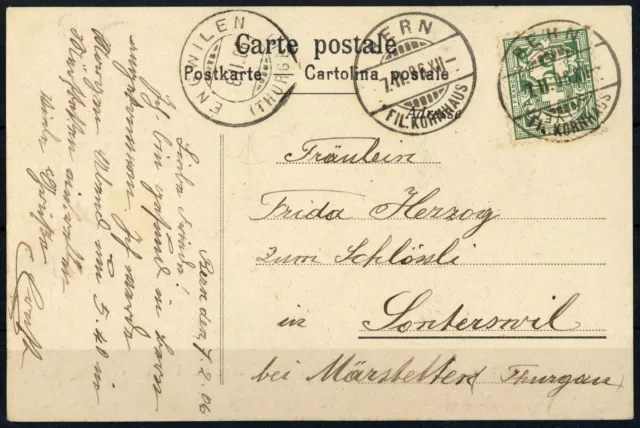 Carte postale
Postkarte Cartolina postale
Adresse
ENGWILEN (THURGAU)
BERN
7.II.06.XII-
FIL. KORNHAUS
FIL. KORNHAUS
Fräulein
Frida Herzog
zum Schlössli
in Sonterswil
bei Märstetten Thurgau
Bern den 7.2.06
Liebe Frida!
Bin gesund in Bern
angekommen. Ich werde
Morgen Abend um 5.40 in
Ernst